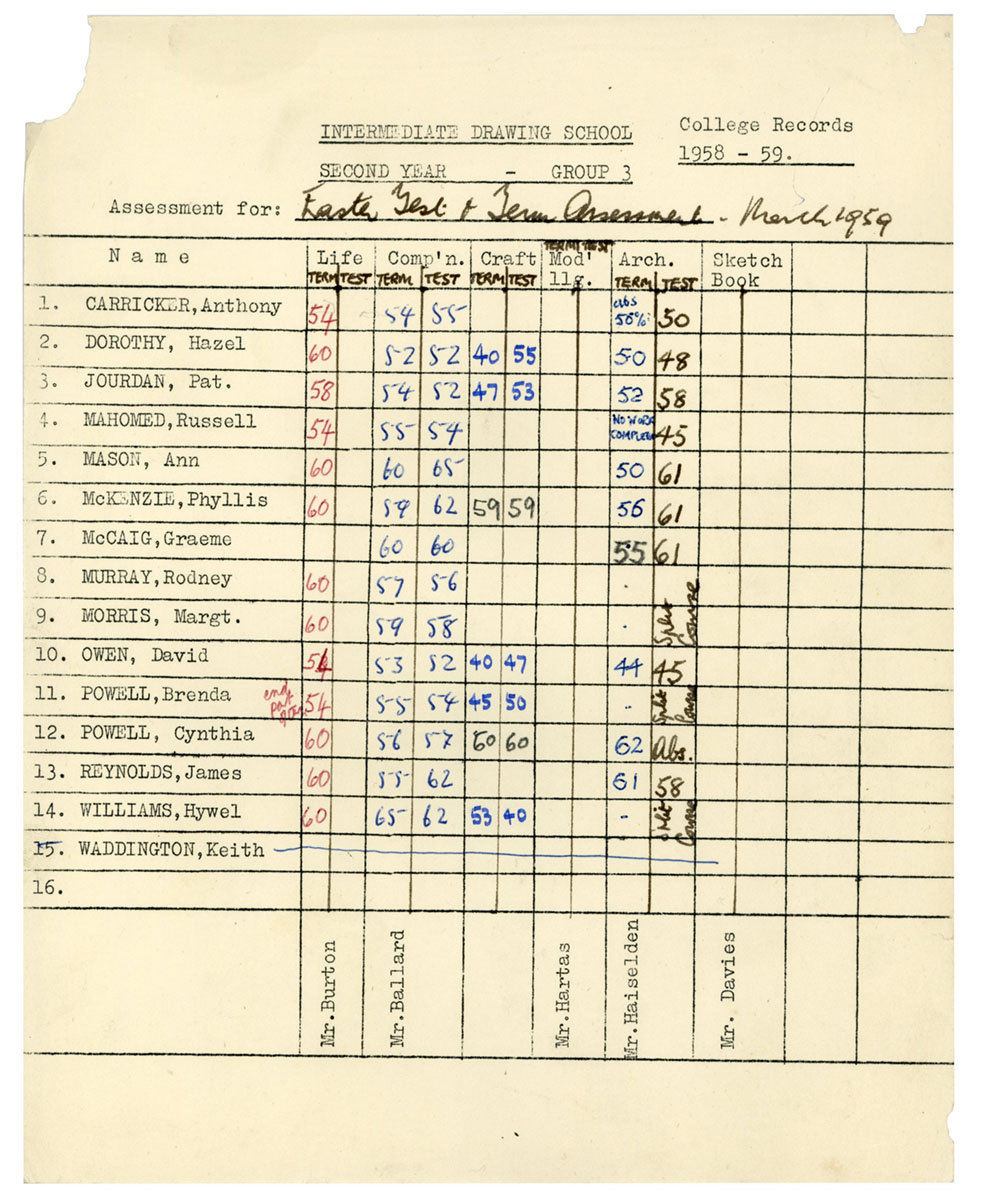 INTERMEDIATE DRAWING SCHOOL
College Records
1958 - 59.
SECOND YEAR - GROUP 3
Assessment for: Easter Test & Term Assessment - March 1959
Name Life Comp'n. Craft Mod'llg. Arch. Sketch Book
TERM TEST TERM TEST TERM TEST TERM TEST TERM TEST
1. CARRICKER, Anthony 54 54 55 abs 56% 50
2. DOROTHY, Hazel 60 52 52 40 55 50 48
3. JOURDAN, Pat. 58 54 52 47 53 52 58
4. MAHOMED, Russell 54 55 54 NO WORK COMPLETED 45
5. MASON, Ann 60 60 65 50 61
6. McKENZIE, Phyllis 60 59 62 59 59 56 61
7. McCAIG, Graeme 60 60 55 61
8. MURRAY, Rodney 60 57 56 -
9. MORRIS, Margt. 60 59 58 - Split Course
10. OWEN, David 54 53 52 40 47 44 45
11. POWELL, Brenda 54 55 54 45 50 - Split Course
12. POWELL, Cynthia 60 56 57 60 60 62 Abs.
13. REYNOLDS, James 60 55 62 61 58
14. WILLIAMS, Hywel 60 65 62 53 40 - Split Course
15. WADDINGTON, Keith
16.
Mr. Burton
Mr. Ballard
Mr. Hartas
Mr. Haiselden
Mr. Davies